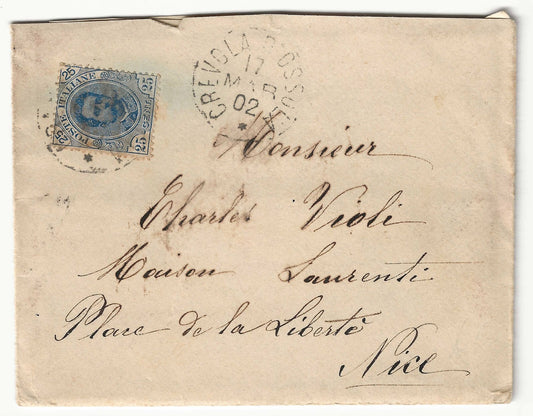 25 POSTE ITALIANE 25
25 25
CREVOLA D'OSSOLA
17
MAR
02
Monsieur
Charles Violi
Maison Laurenti
Place de la Liberté
Nice